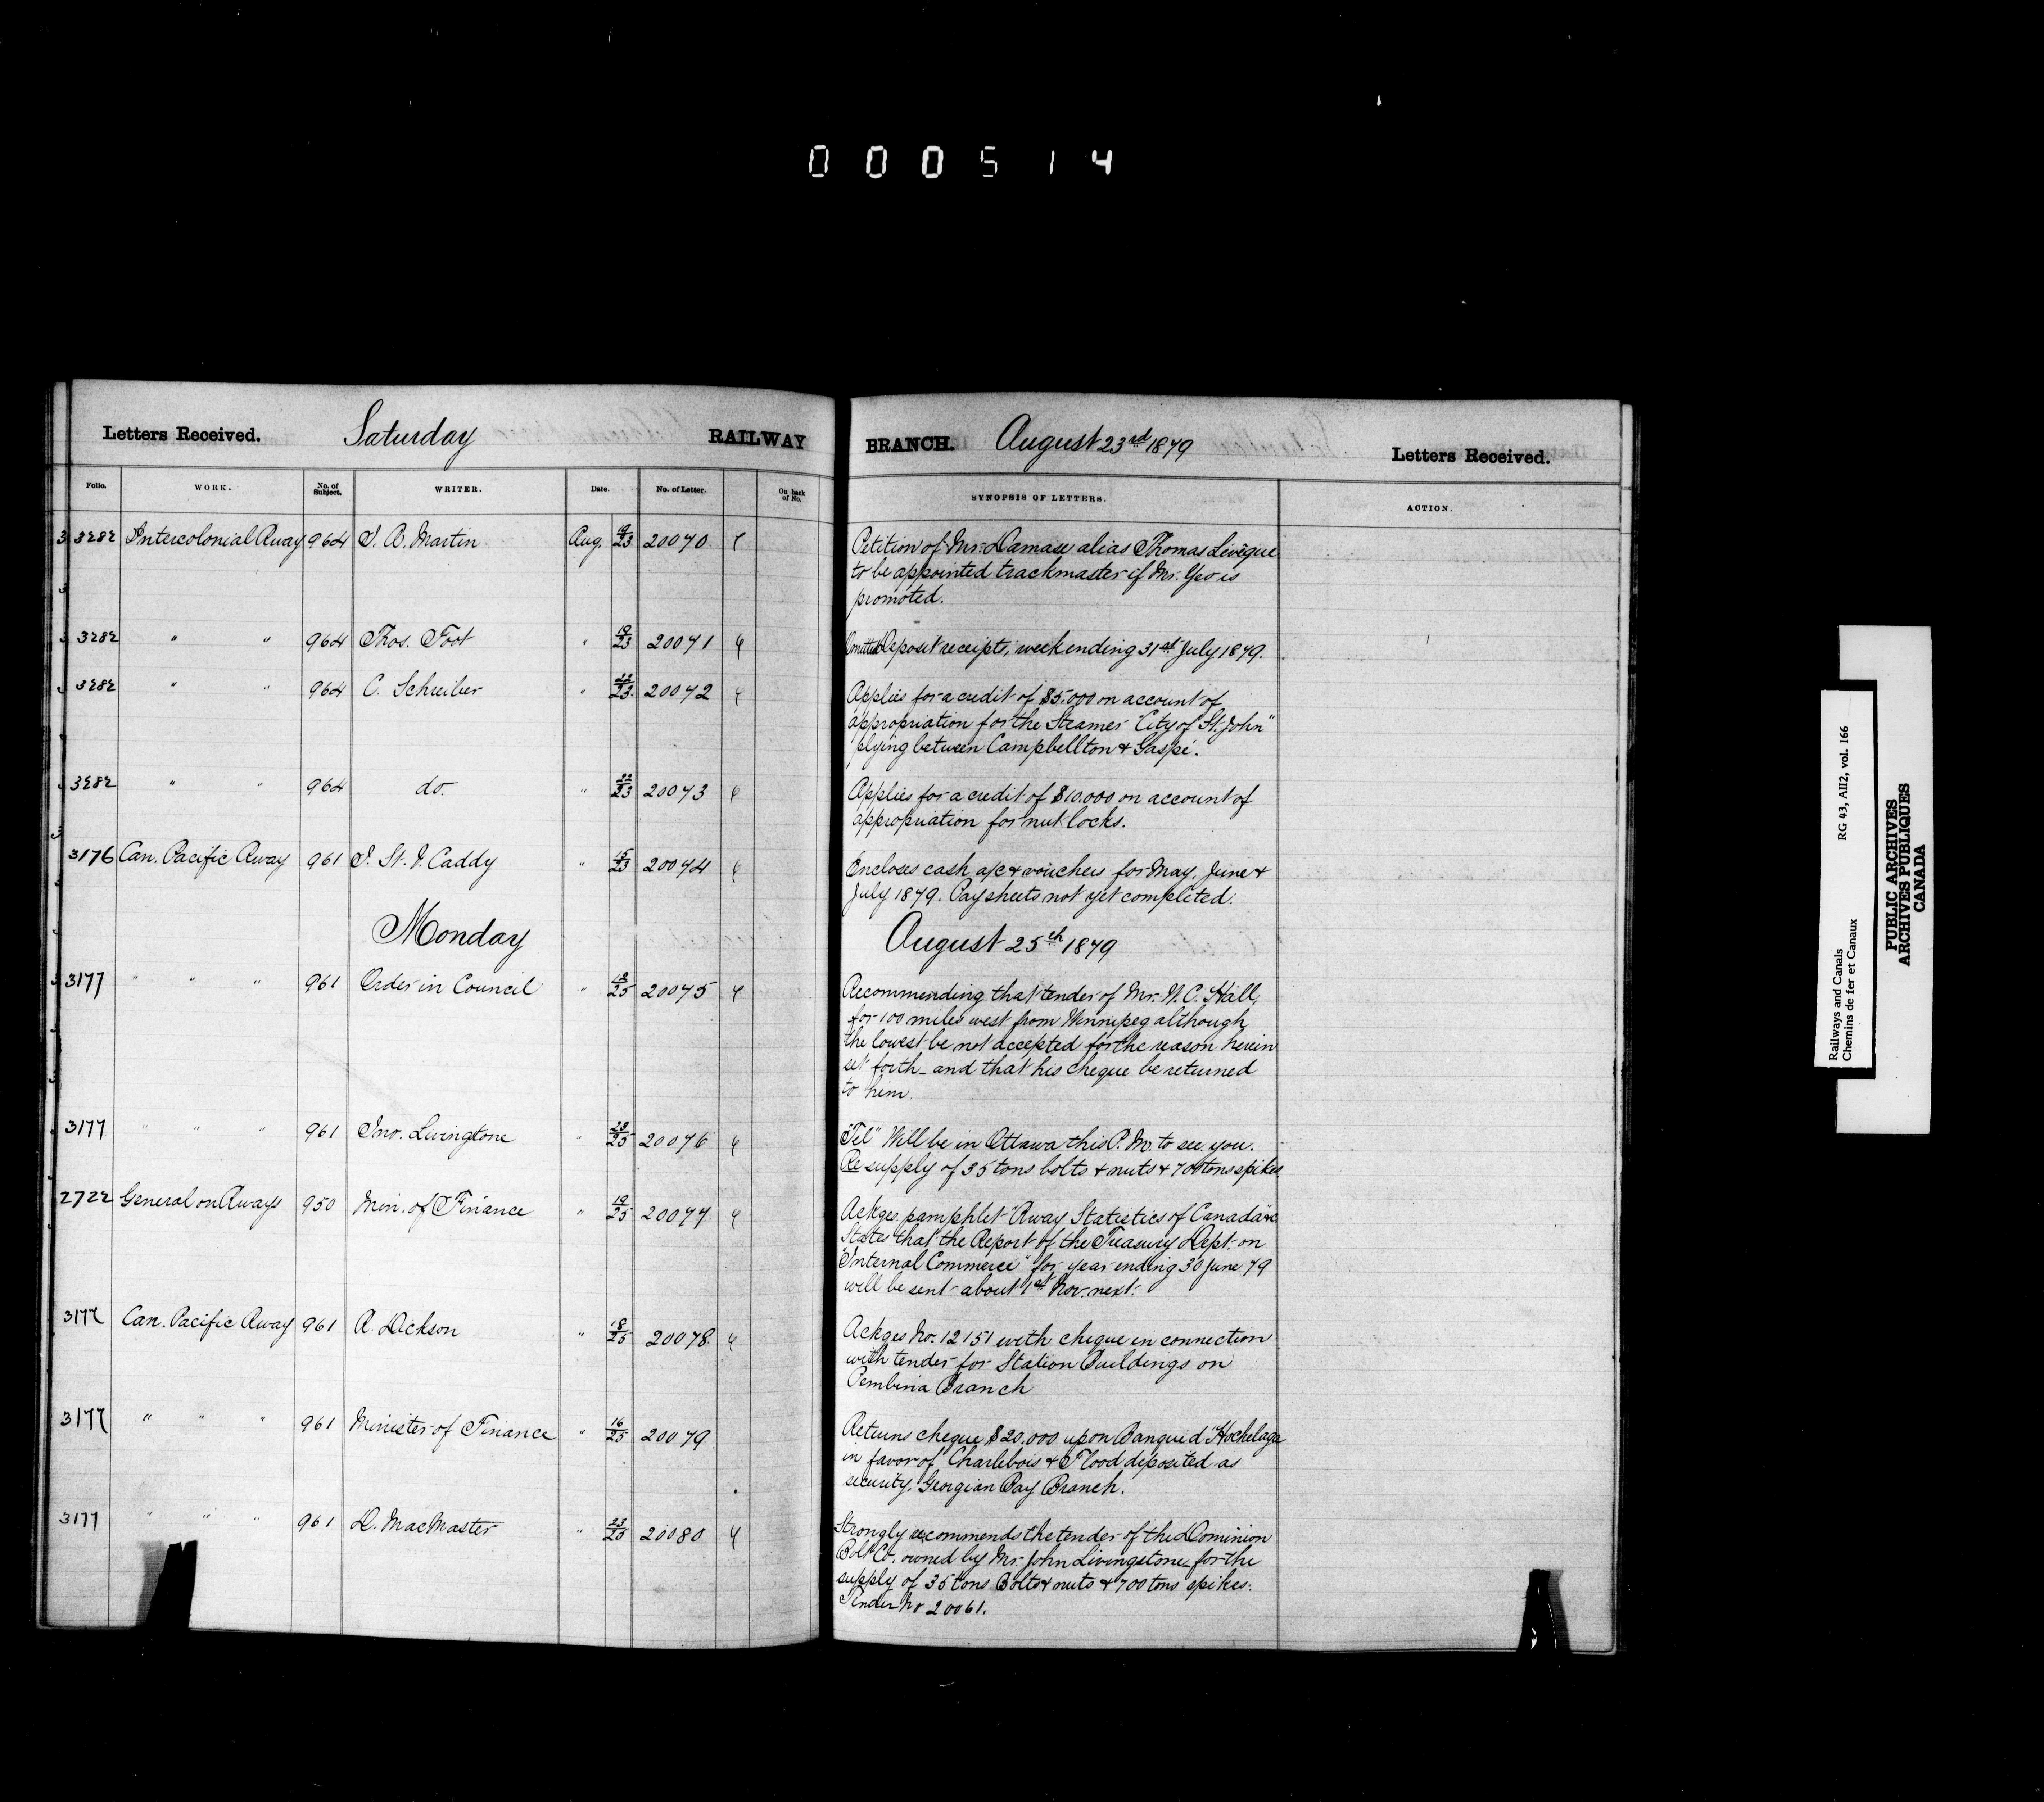 000514
Letters Received. Saturday RAILWAY BRANCH. August 23rd 1879 Letters Received.
Folio. WORK. No. of Subject. WRITER. Date. No. of Letter. On back of No. SYNOPSIS OF LETTERS. ACTION.
3282 Intercolonial Rway 964 J. B. Martin Aug. 19/23 20070 Petition of Mr. Damase alias Thomas Livêque
to be appointed trackmaster if Mr. Yeo is
promoted.
3282 " " 964 Thos. Foot " 19/23 20071 Deposit receipts, week ending 31st July 1879.
3282 " " 964 C. Schreiber " 22/23 20072 Applies for a credit of $5.000 on account of
appropriation for the Steamer "City of St. John"
plying between Campbellton & Gaspé.
3282 " " 964 do. " 22/23 20073 Applies for a credit of $10.000 on account of
appropriation for nut locks.
3176 Can. Pacific Rway 961 J. St. V. Caddy " 15/23 20074 Encloses cash a/c & vouchers for May, June &
July 1879. Pay sheets not yet completed.
Monday August 25th 1879
3177 " " " 961 Order in Council " 18/25 20075 Recommending that tender of Mr. N. C. Hall,
for 100 miles west from Winnipeg although
the lowest be not accepted for the reason herein
set forth - and that his cheque be returned
to him.
3177 " " " 961 Jno. Livingtone " 23/25 20076 "Tel" Will be in Ottawa this P.M. to see you.
Re supply of 35 tons bolts & nuts & 700 tons spikes
2722 General on Rways 950 Min. of Finance " 19/25 20077 Ackges pamphlet "Rway Statistics of Canada" &
States that the Report of the Treasury Dept. on
"Internal Commerce" for year ending 30 June 79
will be sent about 1st Nov. next.
3177 Can. Pacific Rway 961 R. Dickson " 18/25 20078 Ackges No. 12151 with cheque in connection
with tender for Station Buildings on
Pembina Branch
3177 " " " 961 Minister of Finance " 16/25 20079 Returns cheque $20.000 upon Banque d'Hochelaga
in favor of Charlebois & Flood deposited as
security, Georgian Bay Branch.
3177 " " " 961 D. MacMaster " 23/25 20080 Strongly recommends the tender of the Dominion
Bolt Co. owned by Mr. John Livingstone for the
supply of 35 tons Bolts & nuts & 700 tons spikes.
Tender No 20061.
Railways and Canals RG 43, AII2, vol. 166
Chemins de fer et Canaux
PUBLIC ARCHIVES
ARCHIVES PUBLIQUES
CANADA